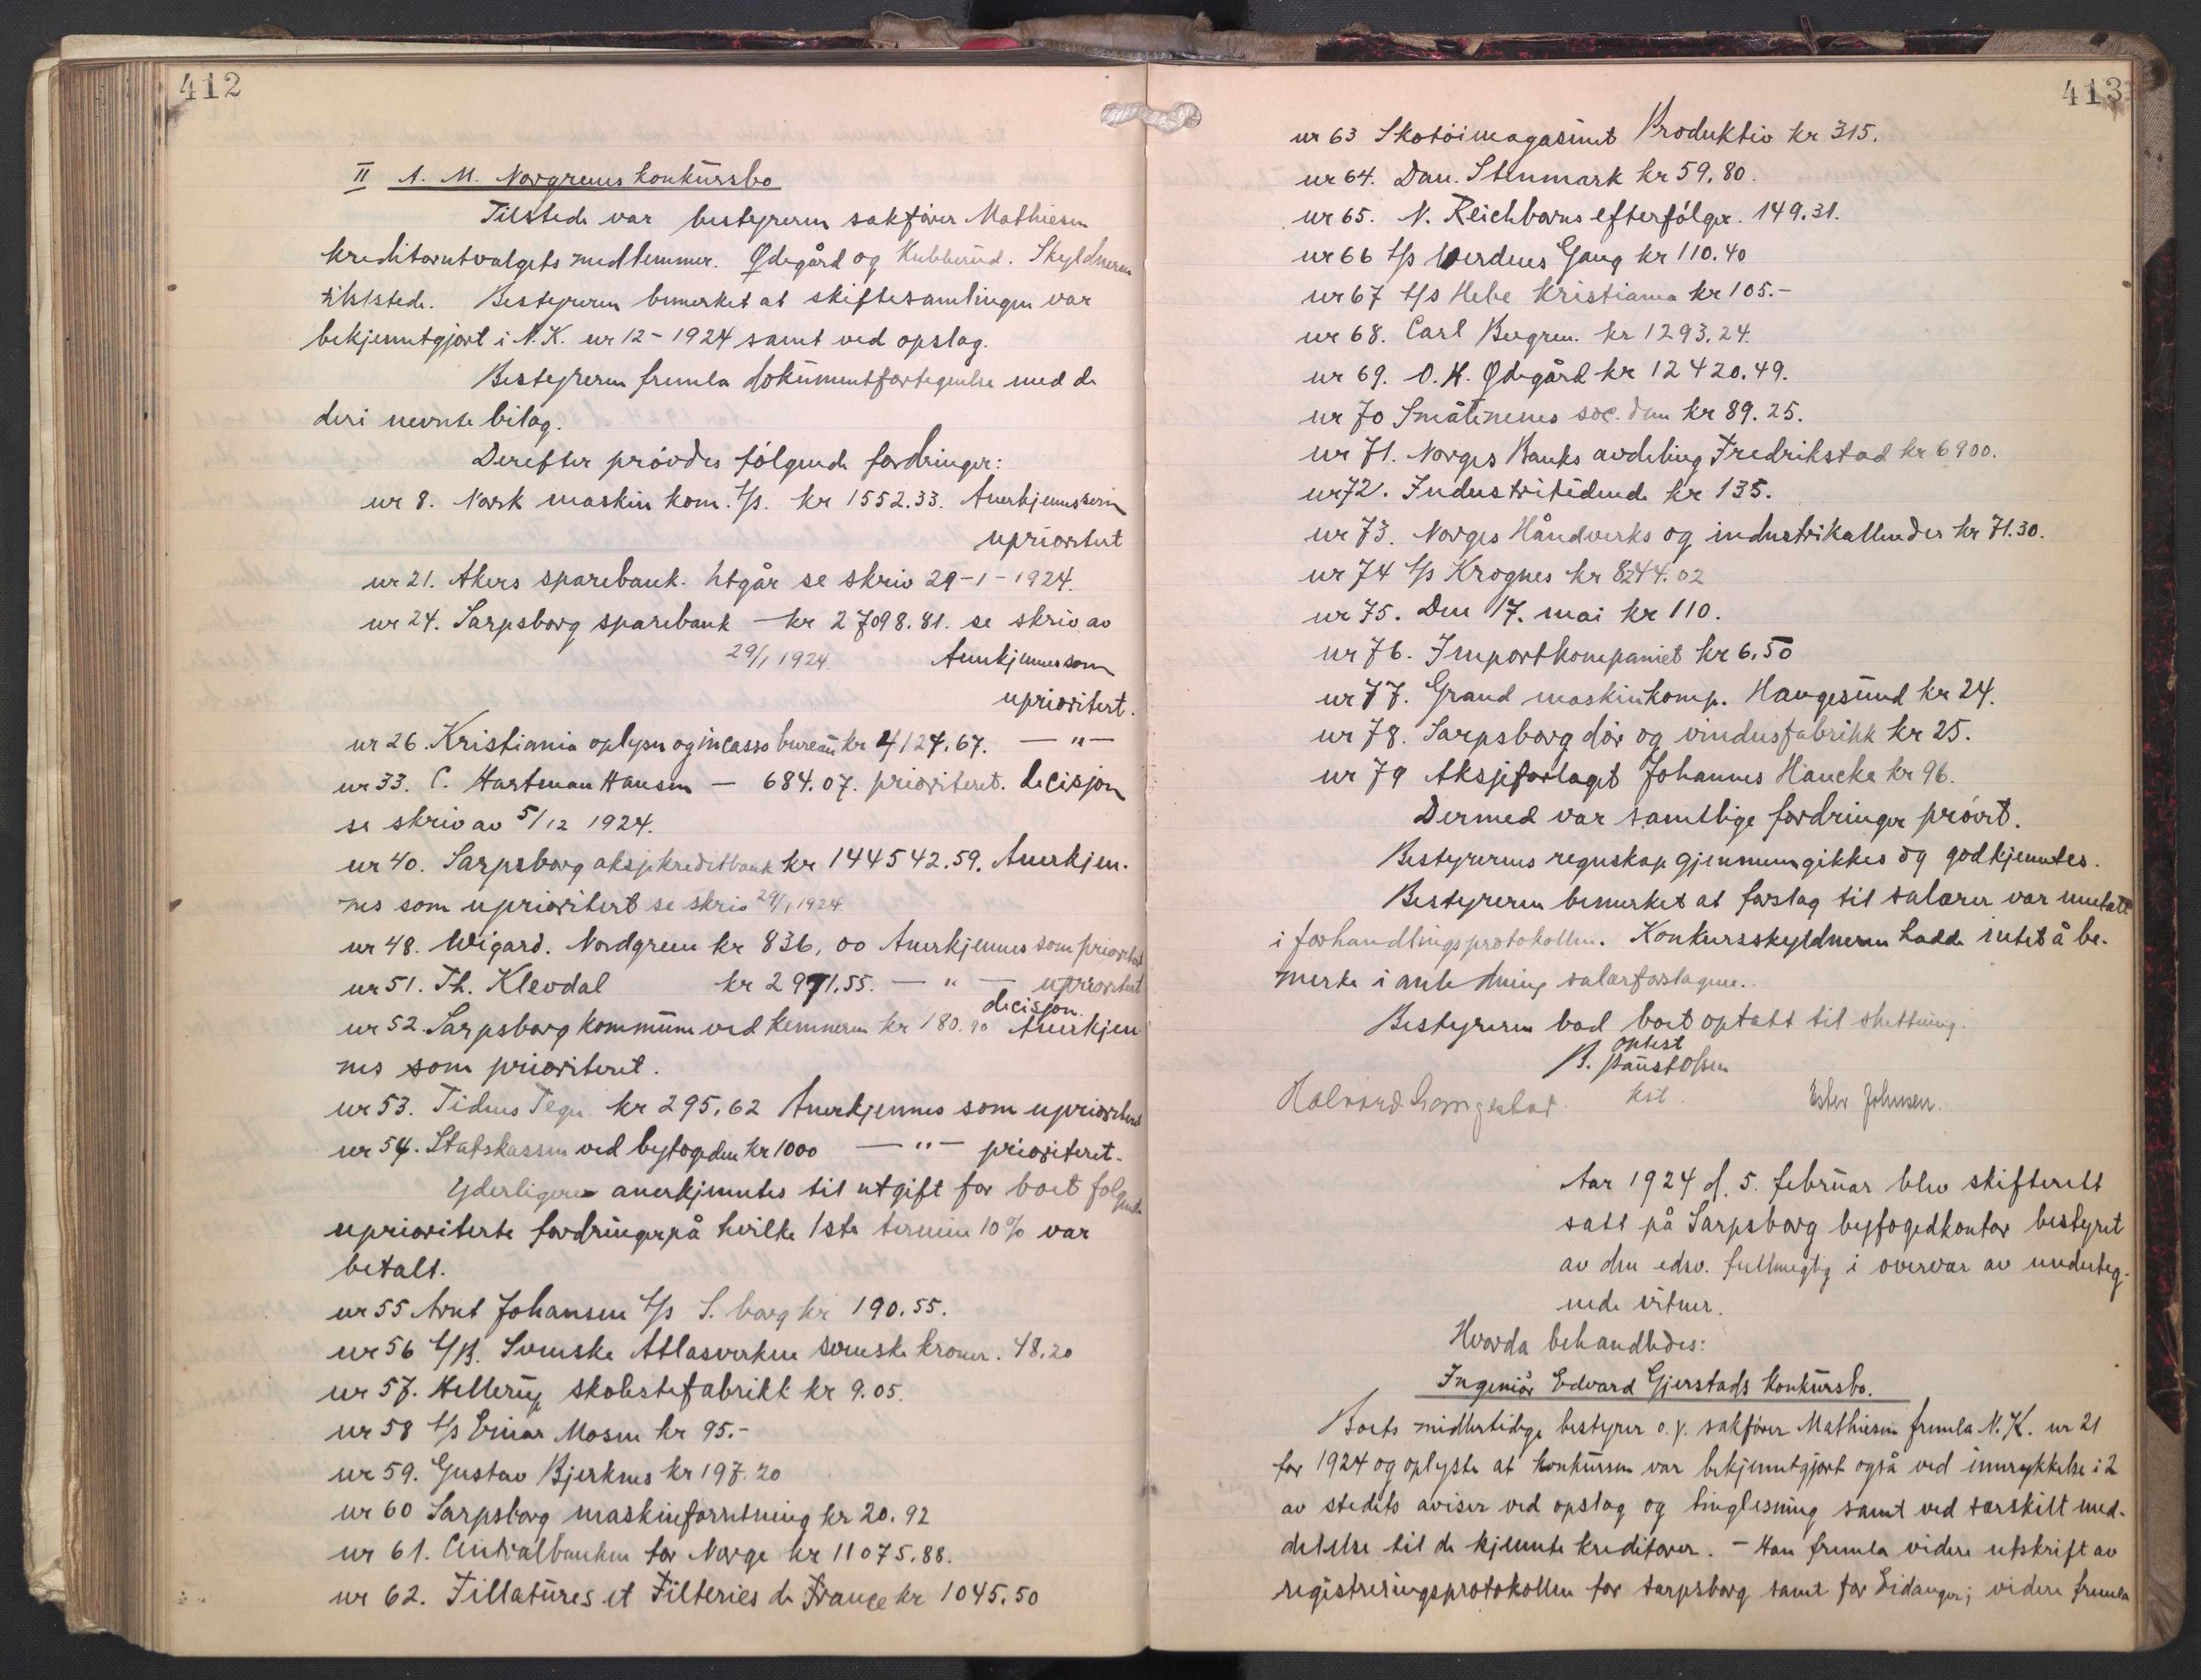 412
II A. M. Norgrens konkursbo
Tilstede var bestyreren sakfører Mathiesen
kreditorutvalgets medlemmer. Ødegård og Kubberud. Skyldneren
tilstede. Bestyreren bemerket at skiftesamlingen var
bekjenntgjort i N.K. nr 12 - 1924 samt ved opslag.
Bestyreren fremla dokumentfortegnelse med de
deri nevnte bilag.
Derefter prøvdes følgende fordringer:
nr 8. Norsk maskin kom. A/s. kr 1552.33. Anerkjennes som
uprioritert
nr 21. Akers sparebank. Utgår se skriv 29-1-1924.
nr 24. Sarpsborg sparebank - kr 27098.81. se skriv av
29/1 1924. Anerkjennes som
uprioritert.
nr 26. Kristiania oplysn og incasso bureau kr 4124.67. — " —
nr 33. C. Hartman Hansen — 684.07. prioriteret. decisjon
se skriv av 5/12 1924.
nr 40. Sarpsborg aksjekreditbank kr 144542.59. Anerkjen-
nes som uprioritert se skriv 29/1 1924.
nr 48. Wigard. Nordgreen kr 836,00 Anerkjennes som prioritert
nr 51. Th. Klevdal kr 2971.55. — " — uprioritert
decisjon.
nr 52. Sarpsborg kommune ved kemneren kr 180.90 Anerkjen
nes som prioriteret.
nr 53. Tidens Tegn kr 295,62 Anerkjennes som uprioritert
nr 54. Statskassen ved byfogden kr 1000 — " — prioriteret.
Yderligere anerkjenntes til utgift for boet følgende
uprioriterte fordringer på hvilke 1ste termin 10% var
betalt.
nr 55 Arnt Johansen A/s S. borg kr 190.55.
nr 56 A/B. Svenske Atlasverken svenske kroner. 48.20
nr 57. Hellerup skolestefabrikk kr 9.05.
nr 58 A/s Einar Mosen kr 95.-
nr 59. Gustav Bjerknes kr 197.20
nr 60 Sarpsborg maskinforretning kr 20.92
nr 61. Centralbanken for Norge kr 11075.88.
nr 62. Fillatures et Filteries de France kr 1045.50
413
nr 63 Skotøimagasinet Produktiv kr 315.
nr 64. Dan. Stenmark kr 59,80.
nr 65. N. Reichborns efterfølger. 149.31.
nr 66 A/s Verdens Gang kr 110.40
nr 67 A/s Hebe Kristiania kr 105.-
nr 68. Carl Bergren. kr 1293.24.
nr 69. O.H. Ødegård kr 12420.49.
nr 70 Smålenenes soc. dem kr 89.25.
nr 71. Norges Banks avdeling Fredrikstad kr 6900.
nr 72. Industritidende kr 135.
nr 73. Norges Håndverks og industrikallender kr 71.30.
nr 74 A/s Krognes kr 8244.02
nr 75. Den 17. mai kr 110.
nr 76. Importkompaniet kr 6.50
nr 77. Grand maskinkomp. Haugesund kr 24.
nr 78. Sarpsborg dør og vindusfabrikk kr 25.
nr 79 Aksjeforlaget Johannes Hancke kr 96.
Dermed var samtlige fordringer prøvet.
Bestyrerens regnskap gjennemgikkes og godkjenntes.
Bestyreren bemerket at forslag til salærer var inntatt
i forhandlingsprotokollen. Konkursskyldneren hadde intet å be-
merke i anledning salærforslagene.
Bestyreren bad boet optatt til sluttning.
optest
B. Paust Olsen
kst.
Halvard Ester Johnsen.
Aar 1924 d. 5. februar blev skifterett
satt på Sarpsborg byfogedkontor bestyret
av den edsv. fullmegtig i overvær av underteg-
nede vitner.
Hvorda behandledes:
Ingeniør Edvard Gjerstads konkursbo.
Boets midlertidige bestyrer o.r. sakfører Mathiesen fremla N.K. nr 21
for 1924 og oplyste at konkursen var bekjenntgjort også ved innrykkelse i 2
av stedets aviser ved opslag og tinglesning samt ved særskilt med-
delelse til de kjennte kreditorer. - Han fremla videre utskrift av
registreringsprotokollen for Sarpsborg samt for Eidanger; videre fremla